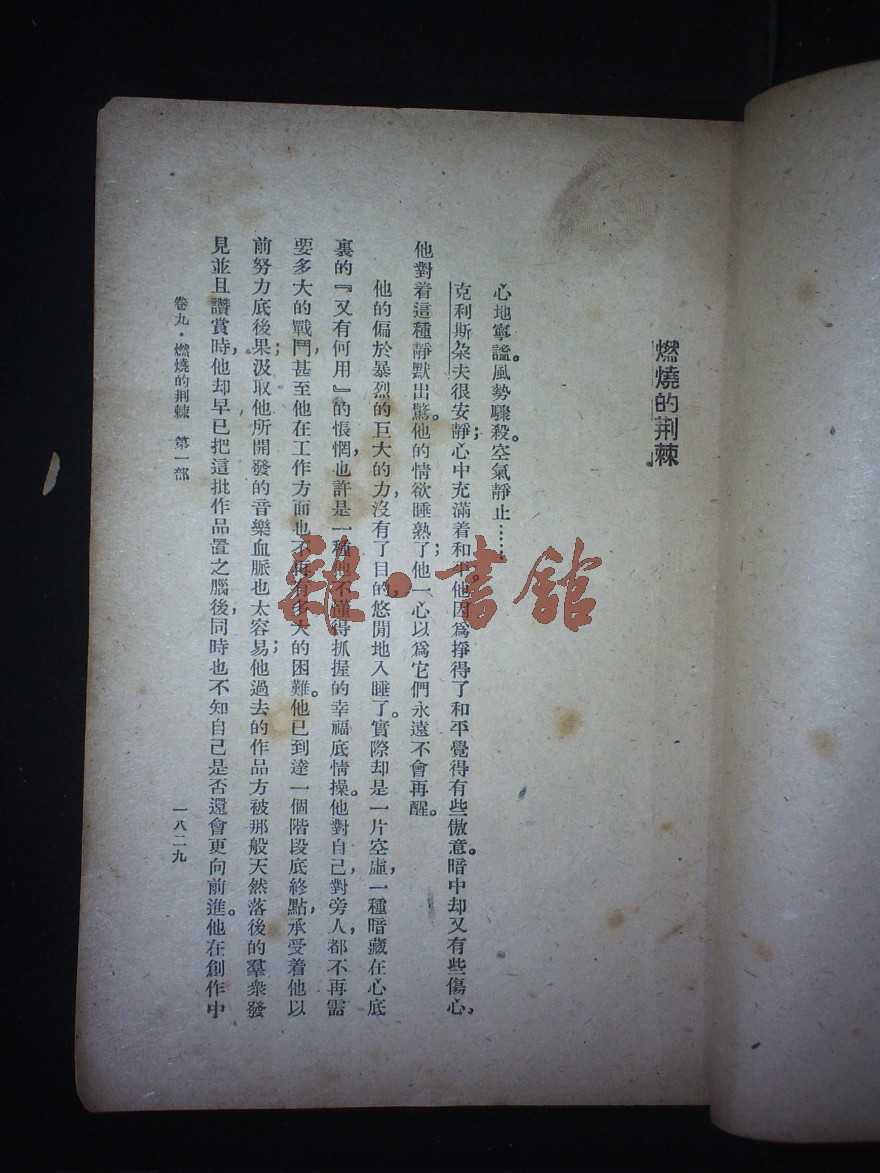 燃燒的荆棘
心地寧謐。風勢驟殺。空氣靜止……
克利斯朵夫很安靜；心中充滿着和平。他因爲掙得了和平覺得有些傲意。暗中却又有些傷心，
他對着這種靜默出驚。他的情欲睡熟了；他一心以爲它們永遠不會再醒。
他的偏於暴烈的巨大的力，沒有了目的，悠閒地入睡了。實際却是一片空虛，一種暗藏在心底
裏的『又有何用』的悵惘，也許是一種他不懂得抓握的幸福底情操。他對自己，對旁人，都不再需
要多大的戰鬥，甚至他在工作方面也不再有多大的困難。他已到達一個階段底終點，承受着他以
前努力底後果；汲取他所開發的音樂血脈也太容易；他過去的作品方被那般天然落後的羣衆發
見並且讚賞時，他却早已把這批作品置之腦後，同時也不知自己是否還會更向前進。他在創作中
卷九・燃燒的荆棘　第一部
一八二九
雜・書館